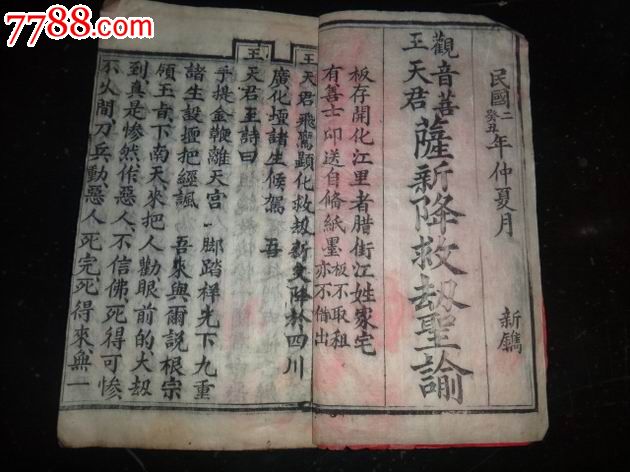 7788.com
民國二年仲夏月 新鐫
癸丑
觀音菩薩新降救劫聖諭
王天君
板存開化江里者腊街江姓家宅
有善士印送自俻紙墨板不取租
亦不借出
王天君飛鸞顕化救刼新文降於四川
廣化壇諸生候駕 吾
王天君主詩曰
手提金鞭離天宫 脚踏祥光下九重
諸生設壇把經諷 吾來與爾説根宗
領玉㫖下南天來把人勸眼前的大刼
到真是惨然作惡人不信佛死得可惨
不久間刀兵動惡人死完死得來無一